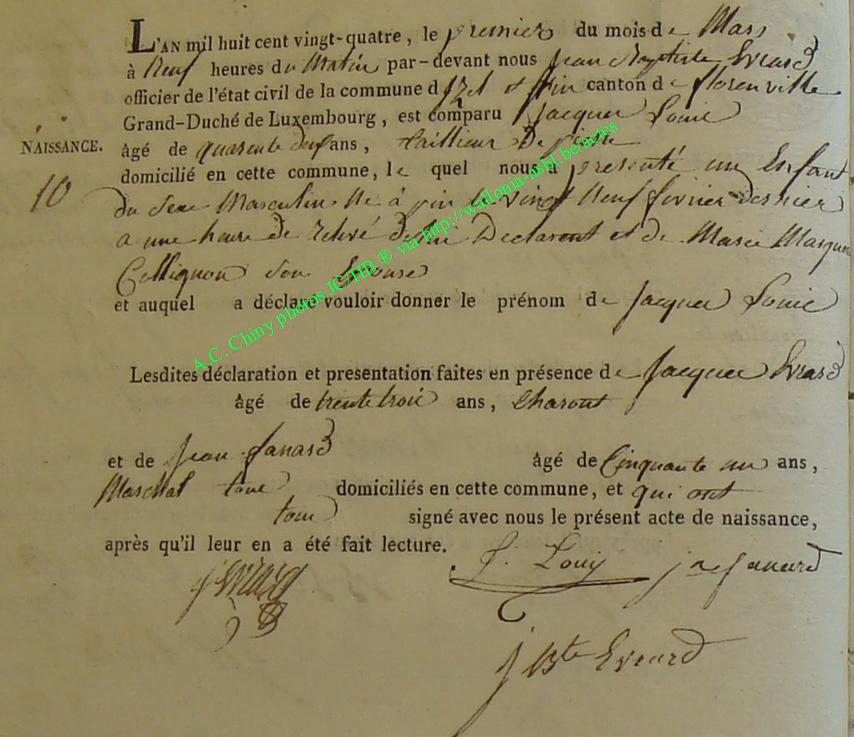 L'AN mil huit cent vingt-quatre, le premier du mois de Mars
à Neuf heures du Matin par-devant nous Jean Baptiste Evrard
officier de l'état civil de la commune d'Izel et pin canton de florenville
Grand-Duché de Luxembourg, est comparu Jacques Louis
NAISSANCE. âgé de quarente deux ans, tailleur De pierre
domicilié en cette commune, le quel nous a presenté un Enfant
10 du Sexe Masculin Né à pin le vingt Neuf fevrier dernier
a une heure de relevé de lui Declarant et de Marie Marguerite
Collignon Son Epouse
et auquel a déclaré vouloir donner le prénom de Jacques Louis
Lesdites déclaration et presentation faites en présence de Jacques Evrard
âgé de trente trois ans, Charont
et de Jean Janard âgé de Cinquante un ans,
Marchal tous domiciliés en cette commune, et qui ont
tous signé avec nous le présent acte de naissance,
après qu'il leur en a été fait lecture.
J. Louis Jn Janard
J Evrard
J Bte Evrard
A.C. Chiny photos JCHB ® via http://wallonia-asbl.be/actes